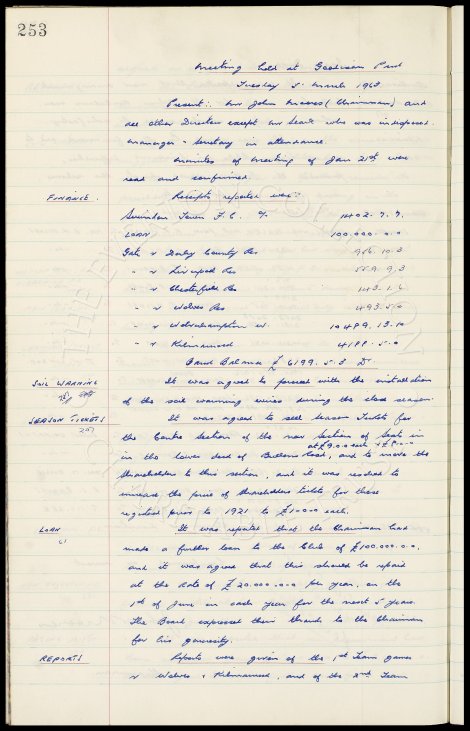 253
Meeting held at Goodison Park
Tuesday 5. March 1963.
Present:. Mr John Moores (Chairman) and
all other Directors except Mr Searle who was indisposed.
Manager & Secretary in attendance.
Minutes of Meeting of Jan 21st were
read and confirmed.
FINANCE. Receipts reported were:
Swindon Town F.C. 1402. 7. 9.
LOAN 100,000. 0. 0
Gate v Derby County Res 10. 3
" v Liverpool Res 559. 9. 3
" v Chesterfield Res 143. 1. 6
" v Wolves Res 493. 5. 0
" v Wolverhampton W. 10489. 13. 10
" v Kilmarnock 4188. 5. 0
Bank Balance £6199. 5. 3 Dr.
SOIL WARMING It was agreed to proceed with the installation
of the soil warming wires during the close season.
SEASON TICKETS It was agreed to sell Season Tickets for
the Centre section of the new section of Seats in
at £9.0.0 each
in the lower deck of Bullens Road, and to move the
Shareholders to this section, and it was resolved to
increase the price of Shareholders tickets for those
registered prior to 1921 to each.
LOAN It was reported that the Chairman had
made a further loan to the Club of £100,000. 0. 0.
and it was agreed that this should be repaid
at the Rate of £20,000. 0. 0 per year, on the
1st of June in each year for the next 5 years.
The Board expressed their thanks to the Chairman
for his generosity.
REPORTS Reports were given of the 1st Team games
v Wolves & Kilmarnock, and of the 2nd Team